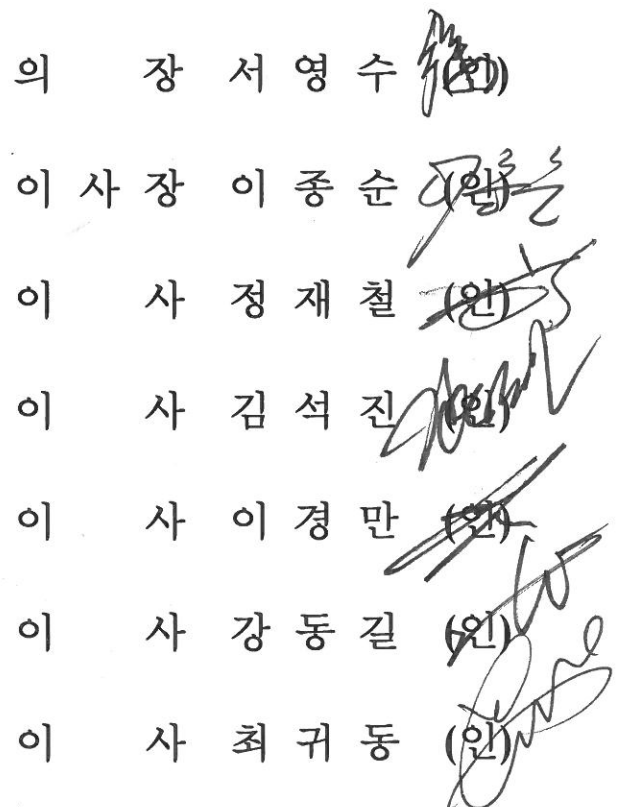 의 장 서 영 수 (인)
이 사 장 이 종 순 (인)
이 사 정 재 철 (인)
이 사 김 석 진 (인)
이 사 이 경 만 (인)
이 사 강 동 길 (인)
이 사 최 귀 동 (인)